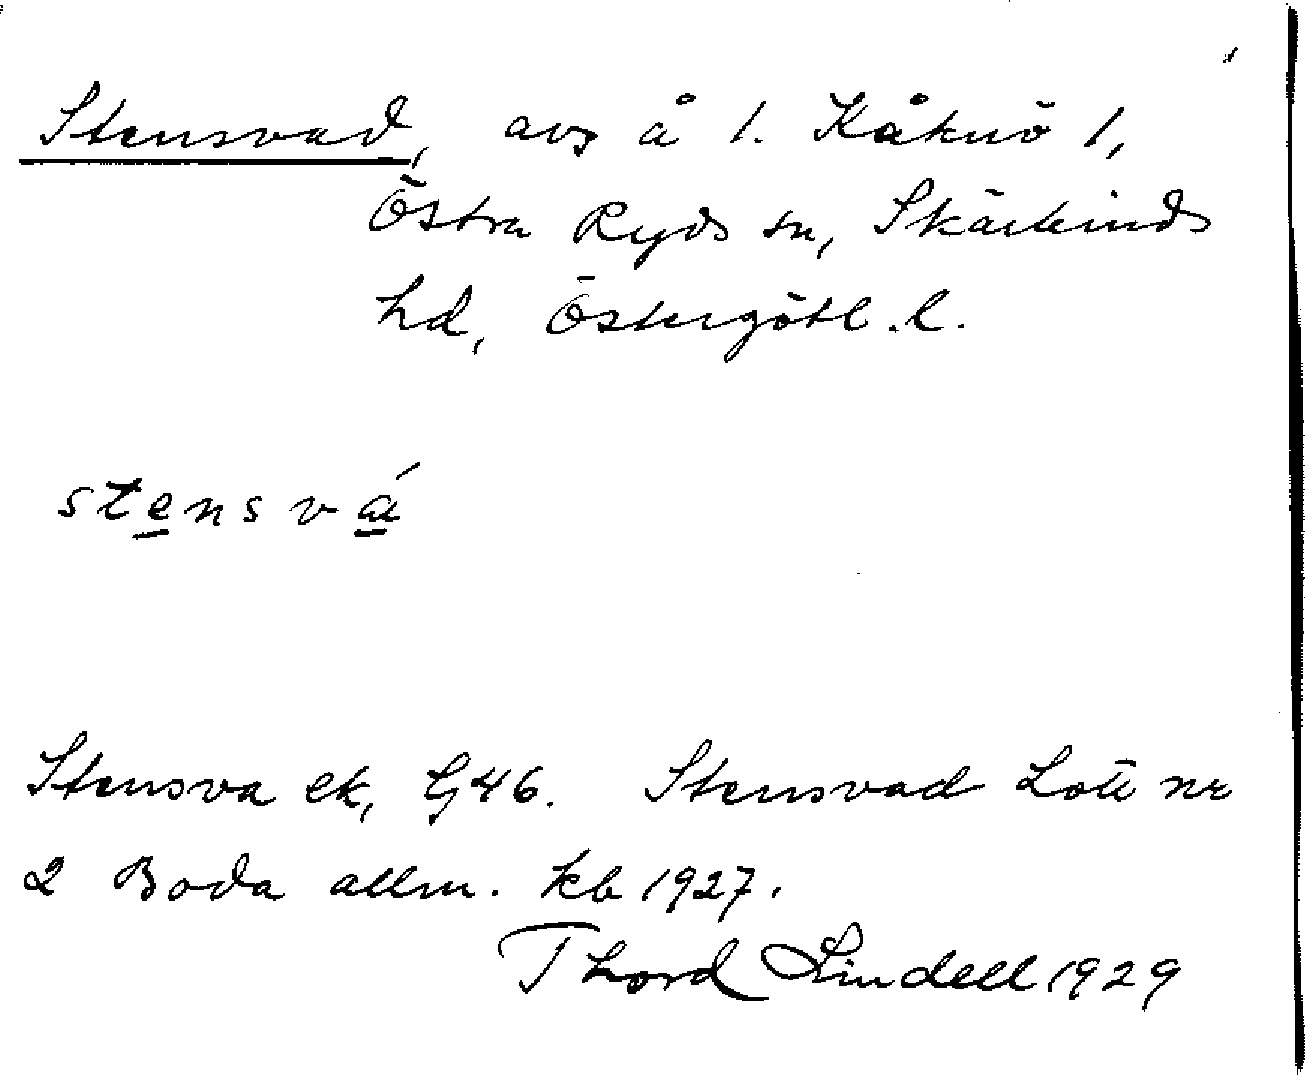 Stensvad, avs å 1. Kåknö 1,
Östra Ryds sn, Skärkinds
hd, Östergötl. l.
stensvá
Stensva ek, G46. Stensvad Lott nr
2 Boda allm. kb 1927.
Thord Lindell 1929